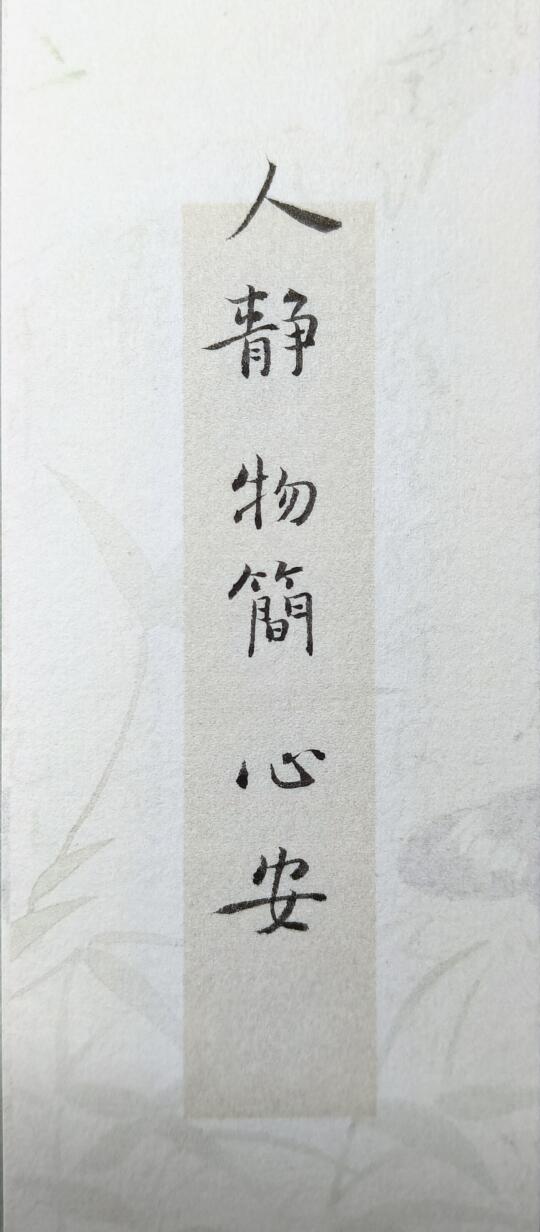 人静物簡心安